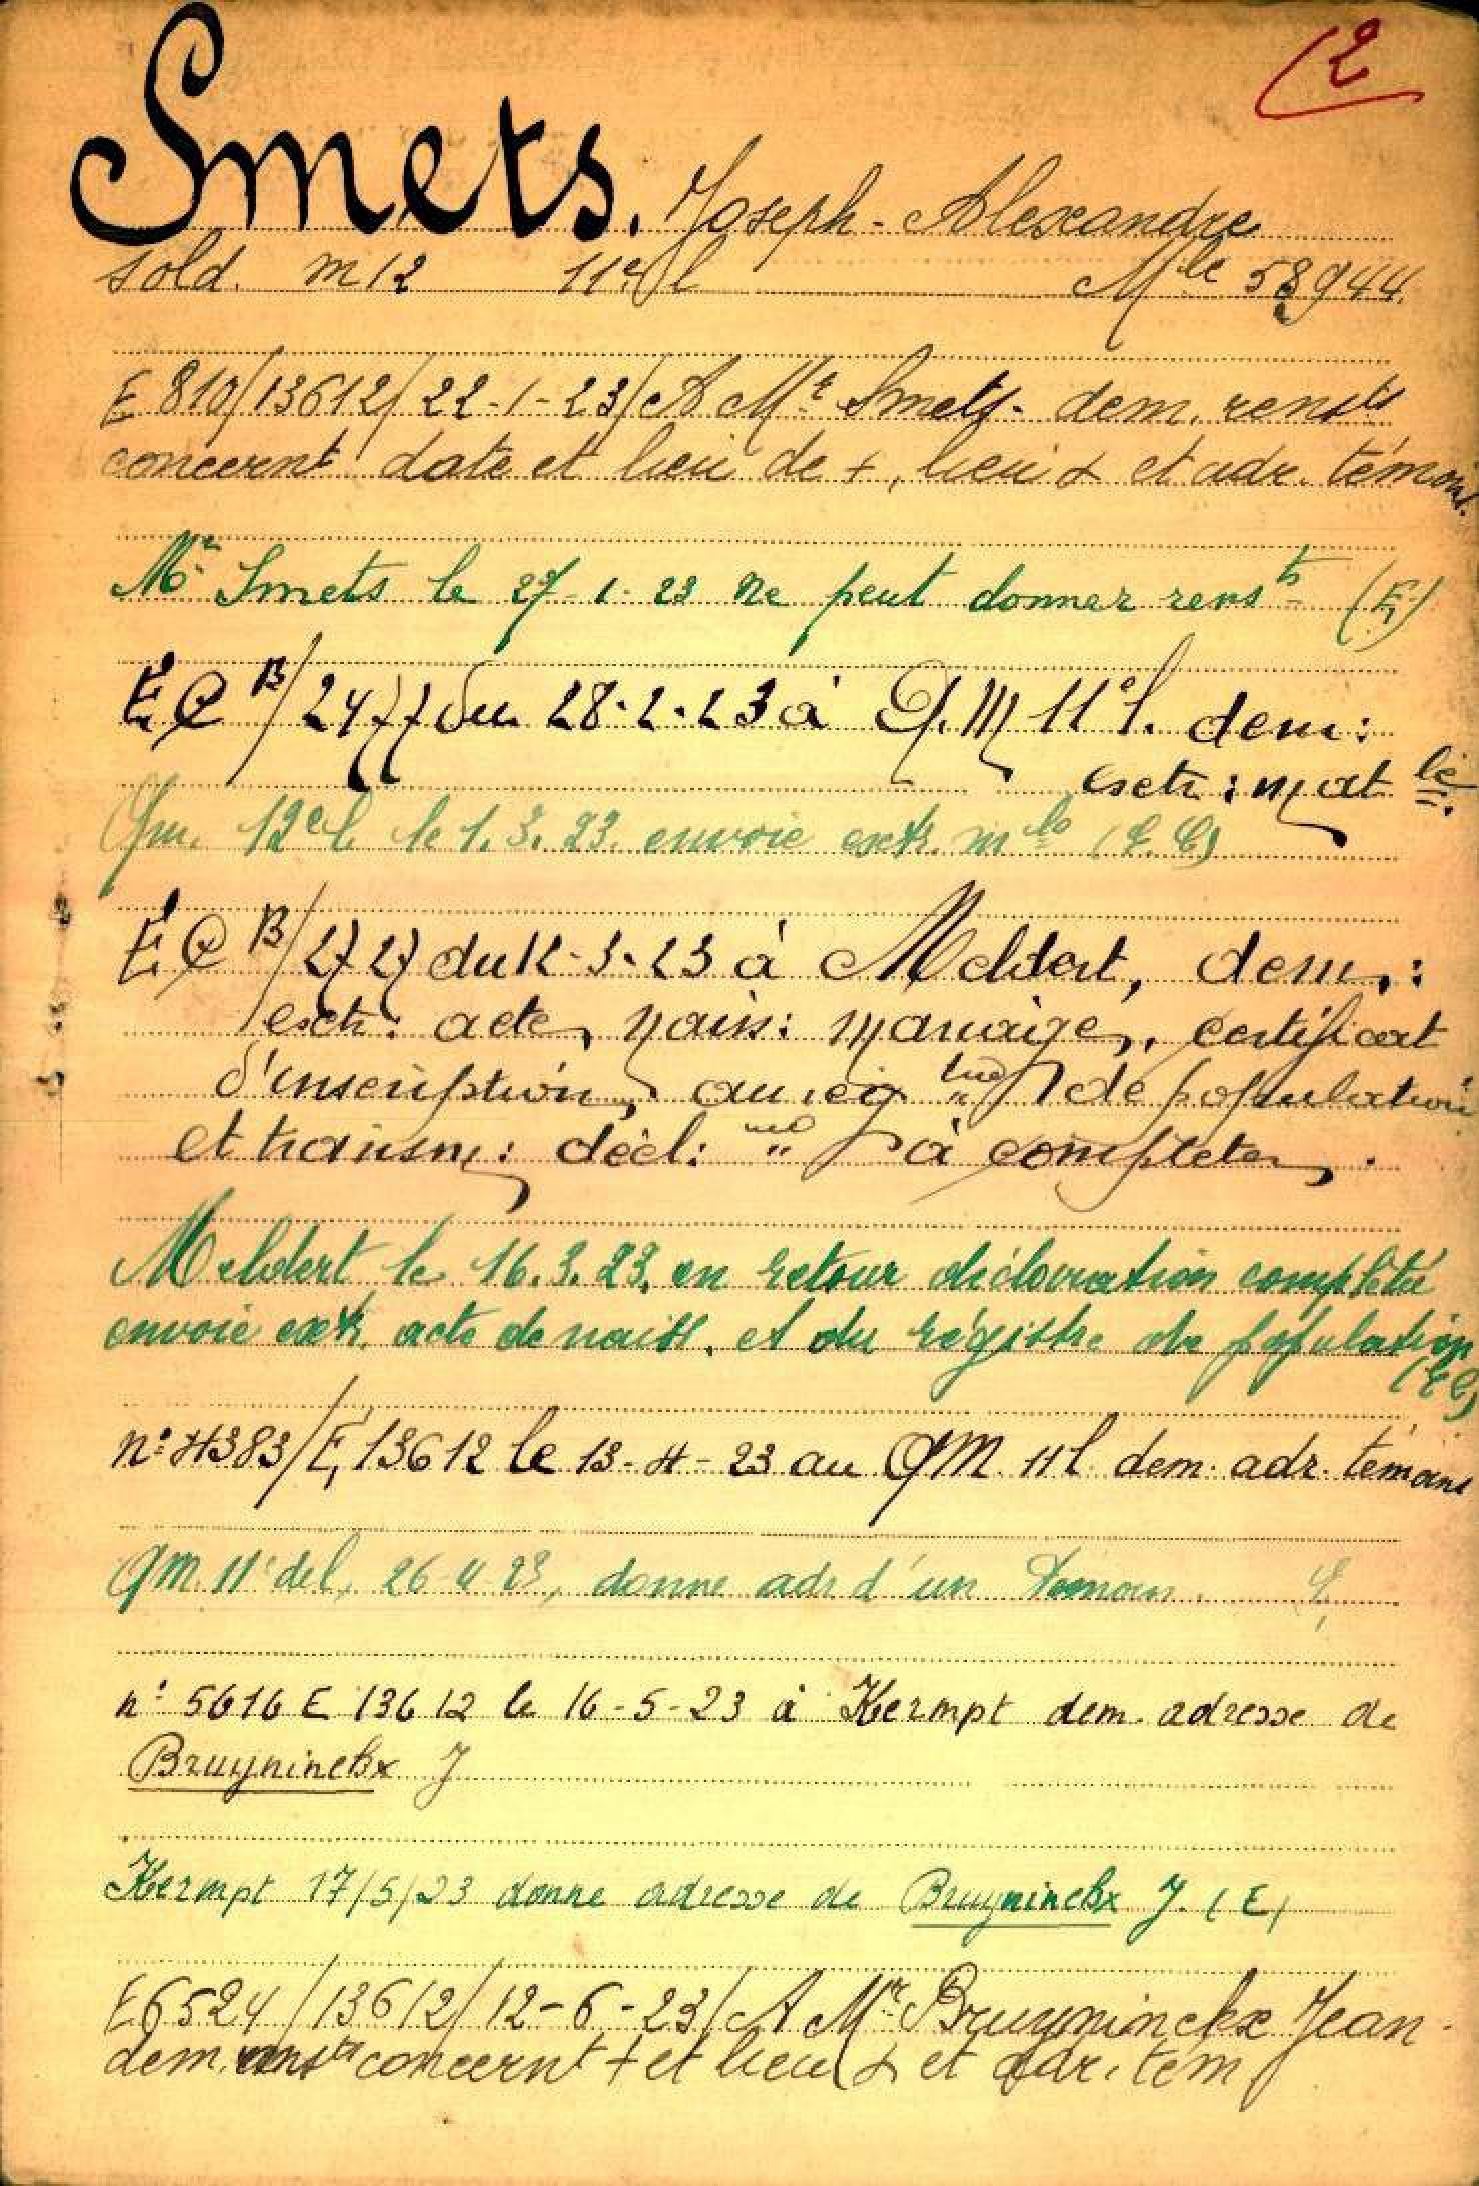 (E
Smets. Joseph-Alexandre
sold. m 12 11e l Mle 58944.
E 810/13612/22-1-23/A Mr Smets- dem. rensts
concernt date et lieu de +, lieu & et adr. témoins.
Mr Smets le 27-1-23 ne peut donner rensts (E)
E C B/2477 du 28-2-23 à Q.M 11e l. dem:
extr: mat le
Qm. 12e l le 1.3.23. envoie extr. mle (E.C)
E C B/2727 du 12-3-23 à Meldert, dem:
extr: acte, nais: mariage, certificat
d'inscription au reg tre de population
et transm: décl: à completer.
Meldert le 16.3.23. en retour déclaration complétée
envoie extr. acte de naiss. et du régistre de population
(EC)
n° 4383/E 13612 le 13-4-23 au QM 11 l dem. adr. témoins
QM 11e de l, 26-4-23, donne adr d'un Témoin. E
n° 5616 E 13612 le 16-5-23 à Kermpt dem. adresse de
Bruyninckx J
Kermpt 17/5/23 donne adresse de Bruyninckx J. (E)
E 6524/13612/12-6-23/A Mr Bruyninckx Jean-
dem. rensts concernt + et lieu & et adr. tem